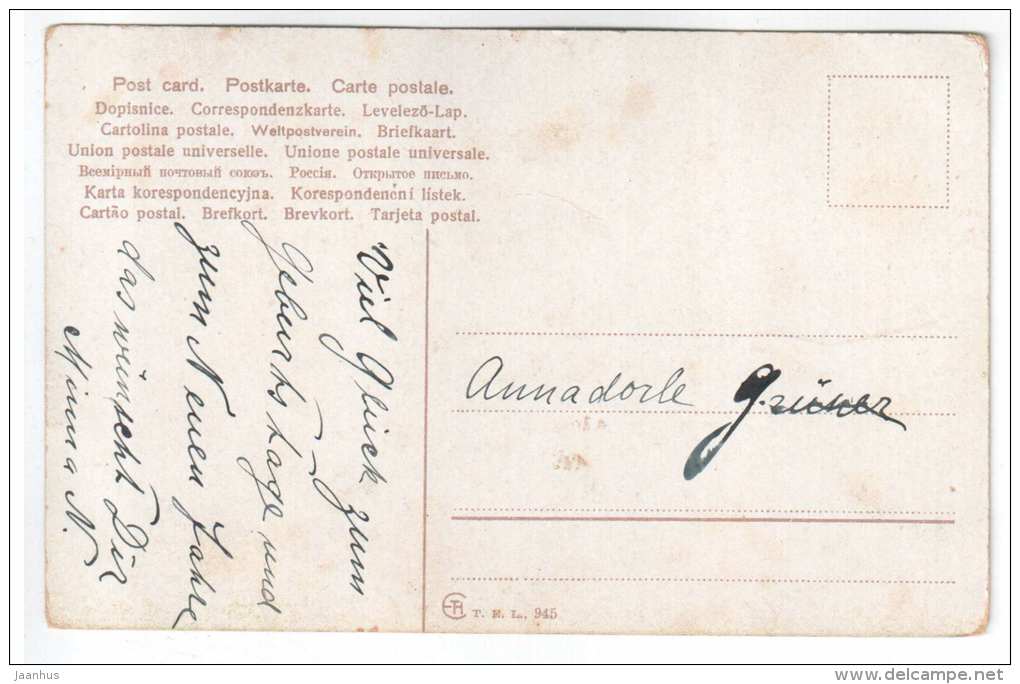 Post card. Postkarte. Carte postale.
Dopisnice. Correspondenzkarte. Levelező-Lap.
Cartolina postale. Weltpostverein. Briefkaart.
Union postale universelle. Unione postale universale.
Всемірный почтовый союзъ. Россія. Открытое письмо.
Karta korespondencyjna. Korespondenční lístek.
Cartão postal. Brefkort. Brevkort. Tarjeta postal.
Viel Glück zum
Geburtstage und
zum Neuen Jahre
das wünscht Dir
Minna N.
Annadorle Grüner
T. E. L. 945
jaanhus
delcampe.net